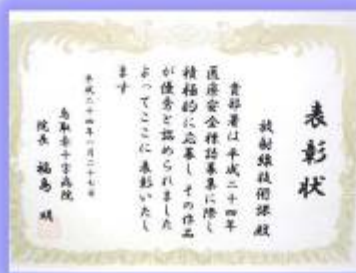 表彰状
放射線技術課殿
貴部署は平成二十四年
医療安全標語募集に際し
積極的に応募しその作品
が優秀と認められました
よってここに表彰いたし
ます
平成二十四年八月二十七日
鳥取赤十字病院
院長 福島 明